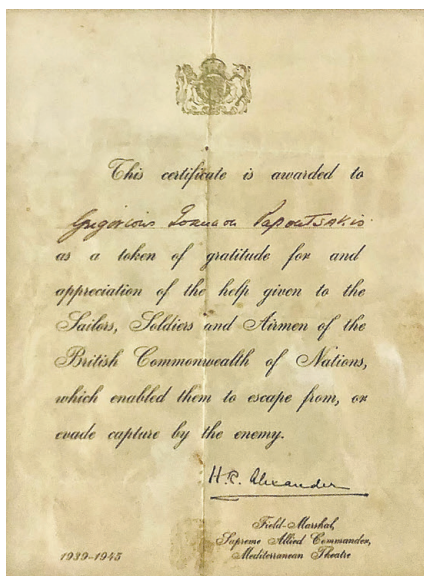 This certificate is awarded to
Grigorious Papoutsakis
as a token of gratitude for and
appreciation of the help given to the
Sailors, Soldiers and Airmen of the
British Commonwealth of Nations,
which enabled them to escape from, or
evade capture by the enemy.
H.R. Alexander
Field-Marshal,
Supreme Allied Commander,
Mediterranean Theatre
1939-1945